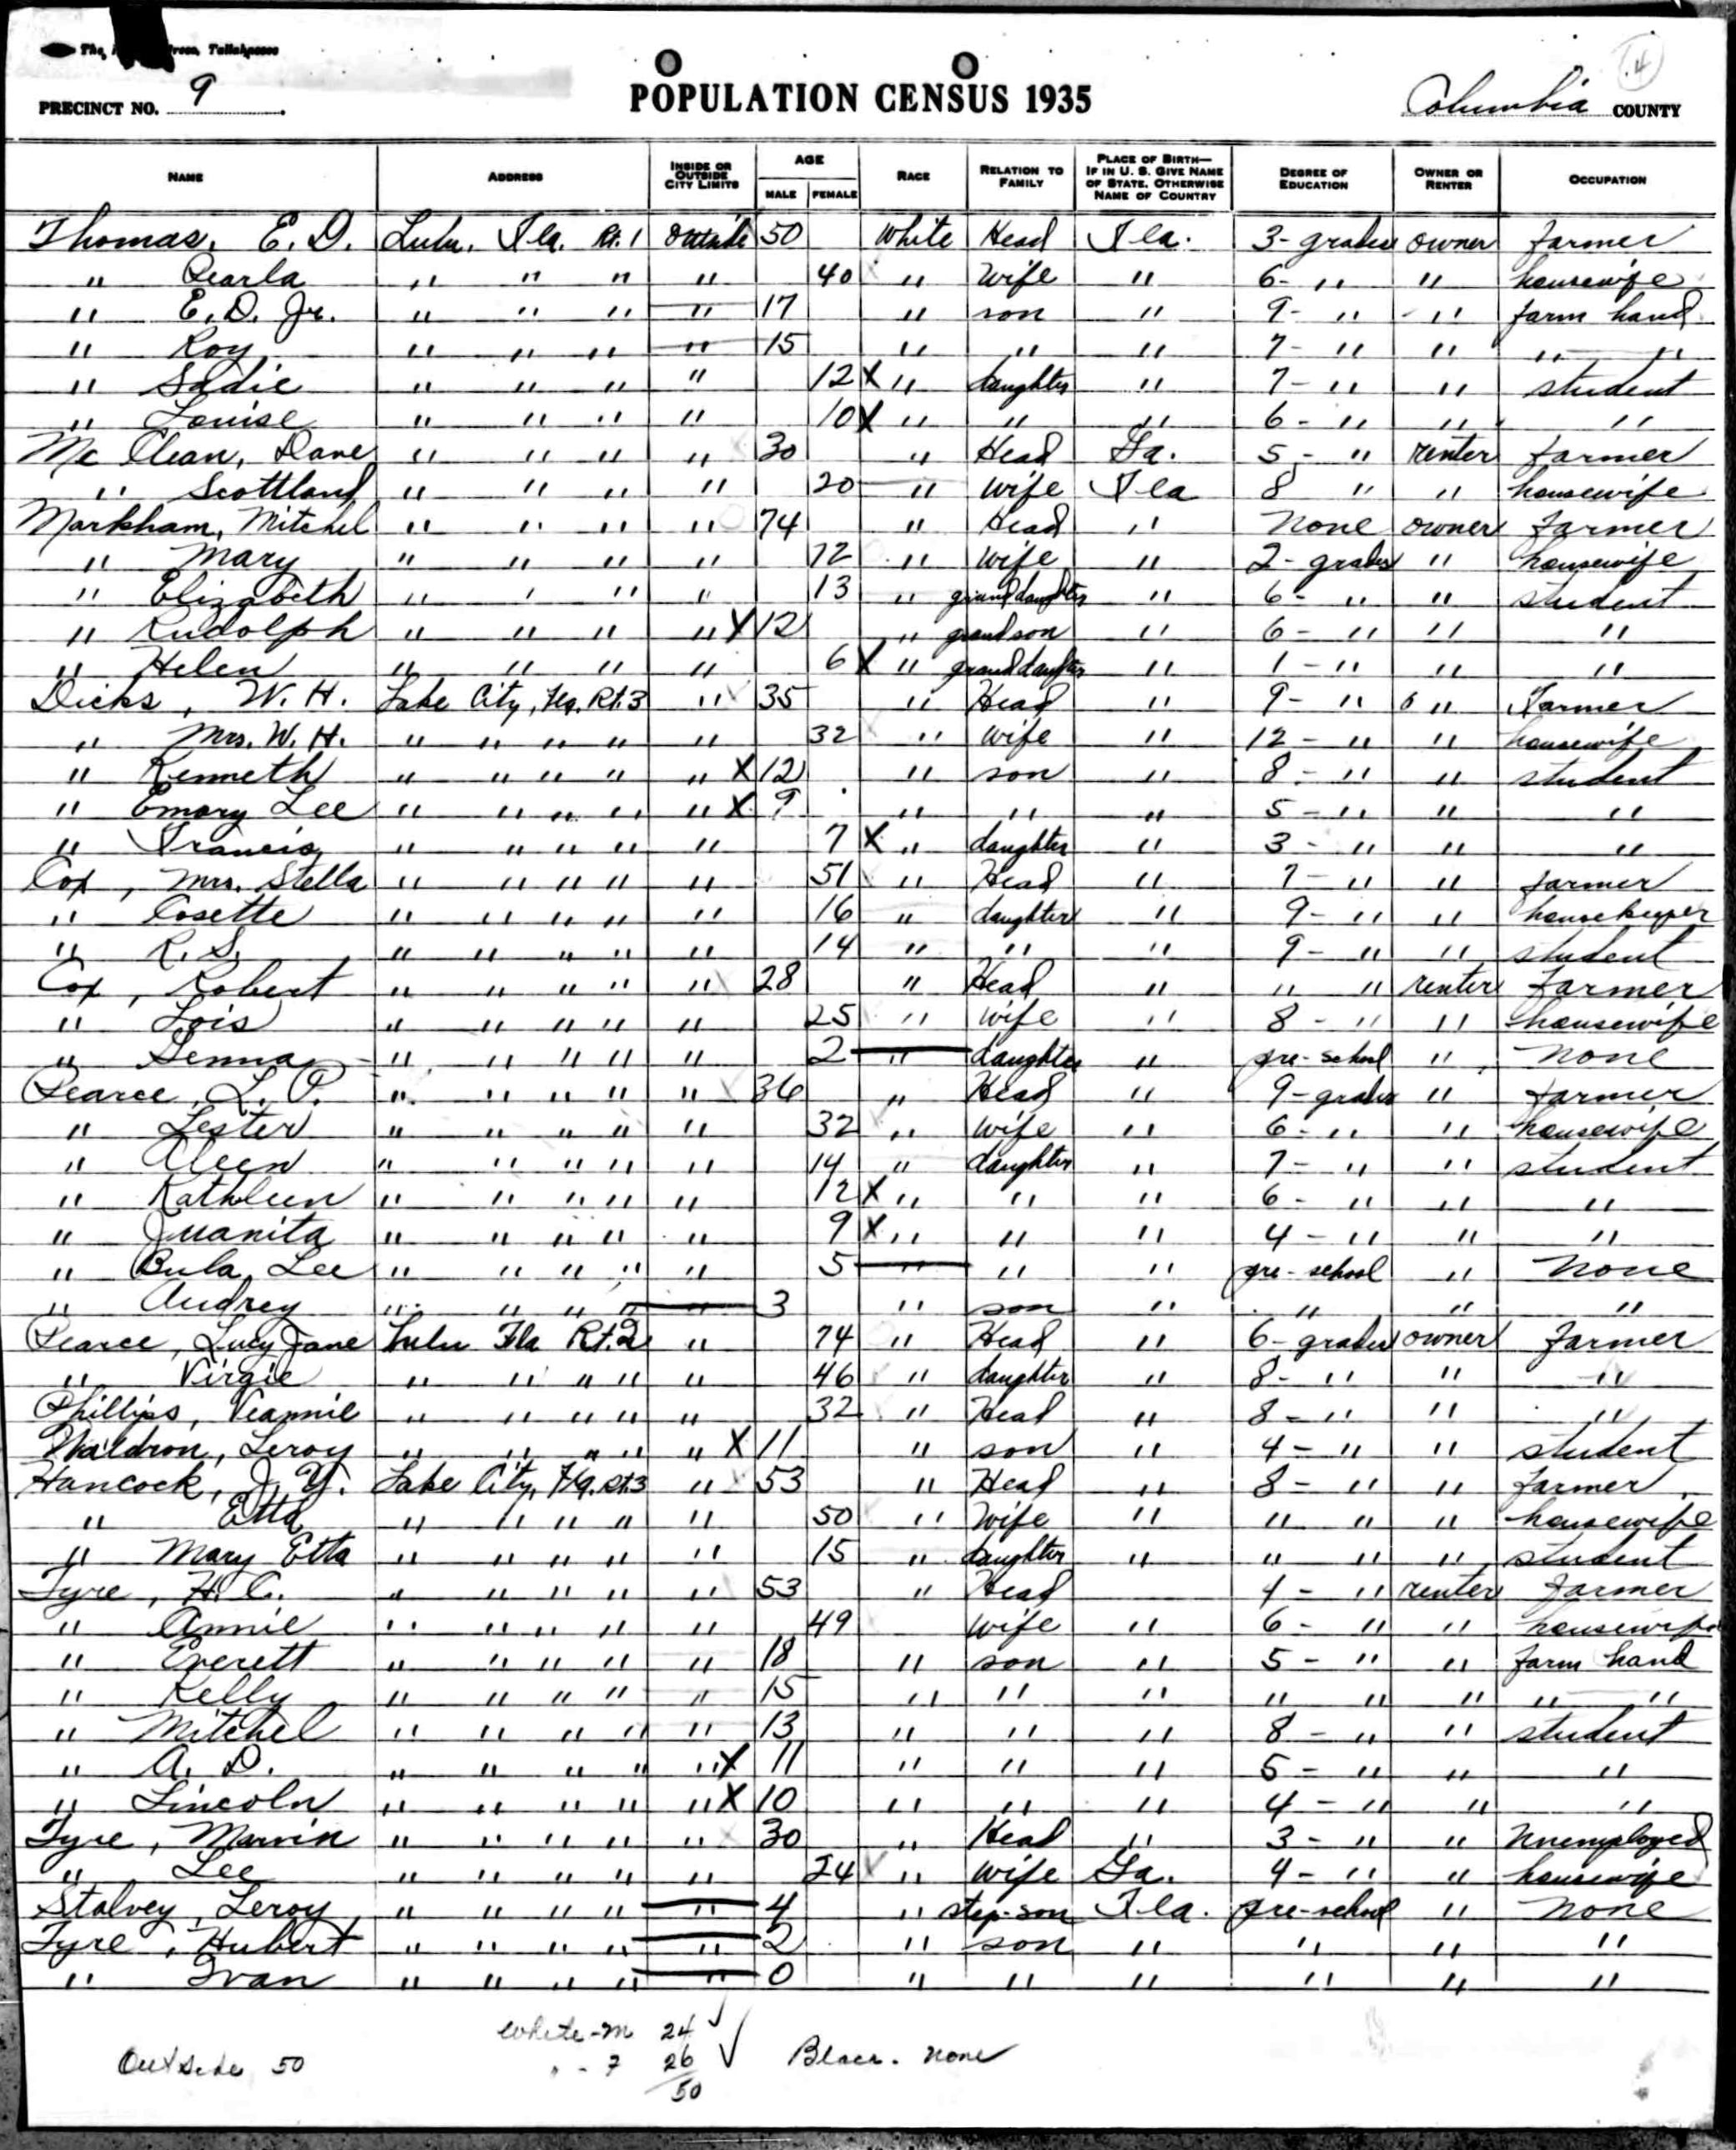 The Press, Tallahassee
14
PRECINCT NO. 9
POPULATION CENSUS 1935
Columbia COUNTY
NAME ADDRESS INSIDE OR OUTSIDE CITY LIMITS AGE MALE FEMALE RACE RELATION TO FAMILY PLACE OF BIRTH—IF IN U. S. GIVE NAME OF STATE. OTHERWISE NAME OF COUNTRY DEGREE OF EDUCATION OWNER OR RENTER OCCUPATION
Thomas, E. D. Lulu, Fla. Rt. 1 outside 50 white Head Fla. 3- grades owner farmer
" Pearla " " " " 40 " wife " 6- " " housewife
" E. D. Jr. " " " " 17 " son " 9- " " farm hand
" Roy " " " " 15 " " " 7- " " " "
" Sadie " " " " 12 X " daughter " 7- " " student
" Louise " " " " 10 X " " " 6- " " "
Mc Clean, Dane " " " " 30 " Head Ga. 5- " renter farmer
" Scottland " " " " 20 " wife Fla 8 " " housewife
Markham, Mitchel " " " " 74 " Head " none owner farmer
" Mary " " " " 72 " wife " 2- grades " housewife
" Elizabeth " " " " 13 " granddaughter " 6- " " student
" Rudolph " " " " X 12 " grandson " 6- " " "
" Helen " " " " 6 X " granddaughter " 1- " " "
Dicks, W. H. Lake City, Fla. Rt. 3 " 35 " Head " 9- " " Farmer
" Mrs. W. H. " " " " " 32 " wife " 12- " " housewife
" Kenneth " " " " " X 12 " son " 8- " " student
" Emory Lee " " " " " X 9 " " " 5- " " "
" Francis " " " " " 7 X " daughter " 3- " " "
Cox, Mrs. Stella " " " " " 51 " Head " 7- " " farmer
" Cosette " " " " " 16 " daughter " 9- " " housekeeper
" R. S. " " " " " 14 " " " 9- " " student
Cox, Robert " " " " " 28 " Head " " " renter farmer
" Lois " " " " " 25 " wife " 8- " " housewife
" Lenna " " " " " 2 " daughter " pre-school " none
Pearce, L. P. " " " " " 36 " Head " 9- grades " farmer
" Lester " " " " " 32 " wife " 6- " " housewife
" Aleen " " " " " 14 " daughter " 7- " " student
" Kathleen " " " " " 12 X " " " 6- " " "
" Juanita " " " " " 9 X " " " 4- " " "
" Bula Lee " " " " " 5 " " " pre-school " none
" Audrey " " " " " 3 " son " " " "
Pearce, Lucy Jane Lulu Fla Rt. 2 " 74 " Head " 6- grades owner farmer
" Virgie " " " " " 46 " daughter " 8- " " "
Phillips, Veannie " " " " " 32 " Head " 8- " " "
Waldron, Leroy " " " " " X 11 " son " 4- " " student
Hancock, J. Y. Lake City, Fla. Rt. 3 " 53 " Head " 8- " " farmer
" Etta " " " " " 50 " wife " " " " housewife
" Mary Etta " " " " " 15 " daughter " " " " student
Tyre, H. C. " " " " " 53 " Head 4- " renter farmer
" Annie " " " " " 49 wife " 6- " " housewife
" Everett " " " " " 18 " son " 5- " " farm hand
" Kelly " " " " " 15 " " " " " " " "
" Mitchel " " " " " 13 " " " 8- " " student
" A. D. " " " " " X 11 " " " 5- " " "
" Lincoln " " " " " X 10 " " " 4- " " "
Tyre, Marvin " " " " " 30 " Head " 3- " " unemployed
" Lee " " " " " 24 " wife Ga. 4- " " housewife
Stalvey, Leroy " " " " " 4 " step-son Fla. pre-school " none
Tyre, Hubert " " " " " 2 " son " " " "
" Ivan " " " " " 0 " " " " " "
White-M 24
Outside 50 " - F 26 Black. none
50